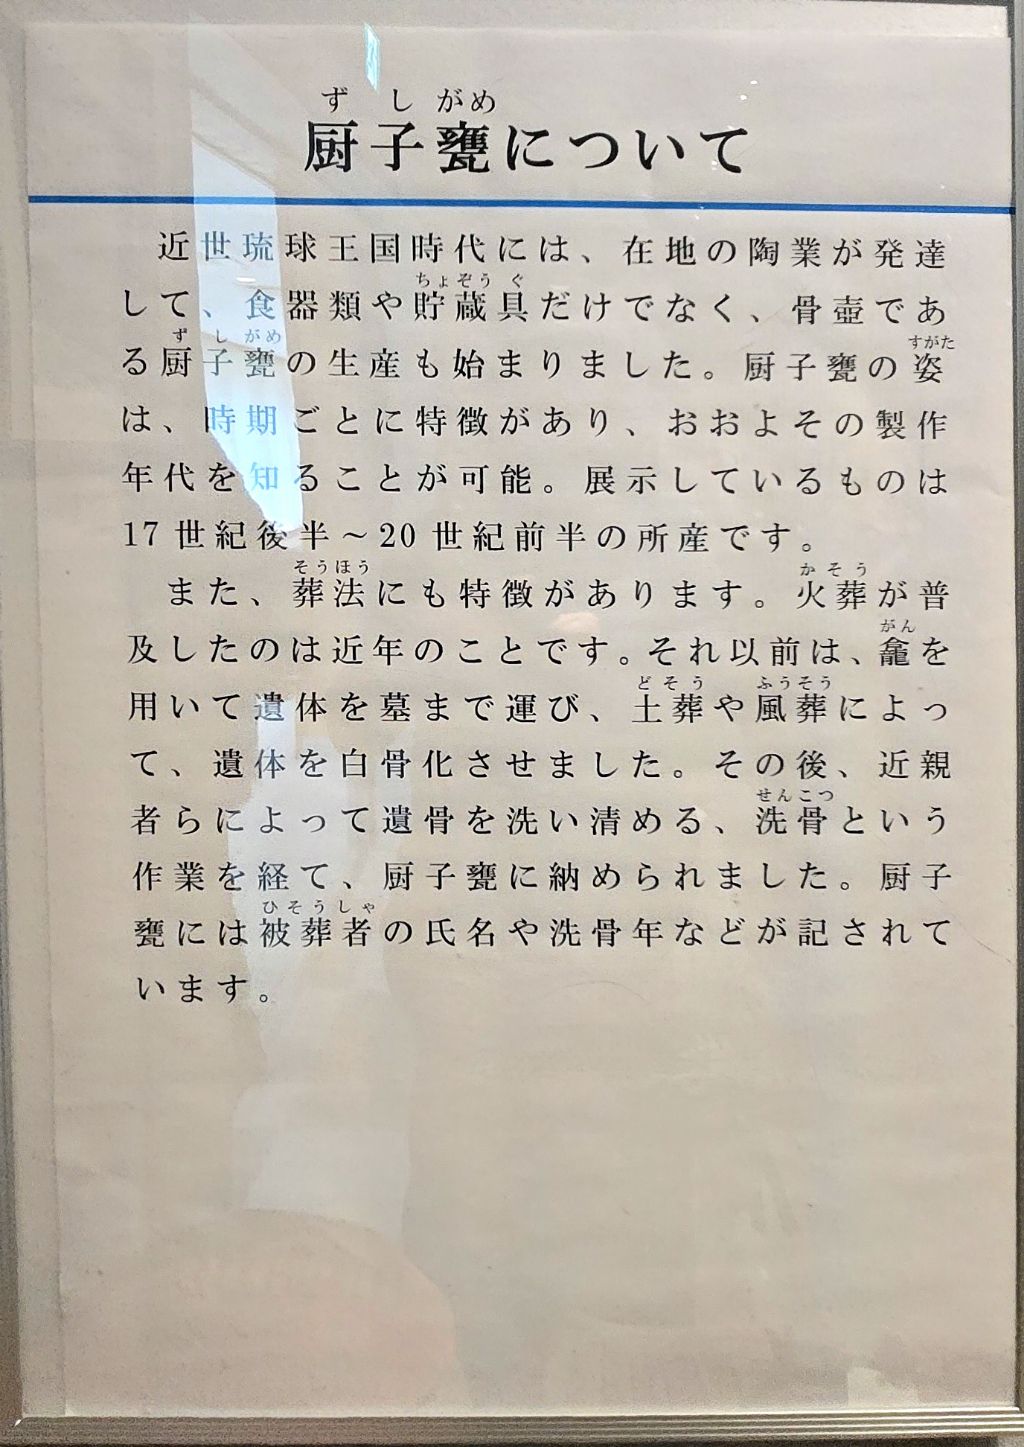 ずしがめ
厨子甕について
近世琉球王国時代には、在地の陶業が発達
ちょぞうぐ
して、食器類や貯蔵具だけでなく、骨壺であ
ずしがめ すがた
る厨子甕の生産も始まりました。厨子甕の姿
は、時期ごとに特徴があり、おおよその製作
年代を知ることが可能。展示しているものは
17世紀後半～20世紀前半の所産です。
そうほう かそう
また、葬法にも特徴があります。火葬が普
がん
及したのは近年のことです。それ以前は、龕を
どそう ふうそう
用いて遺体を墓まで運び、土葬や風葬によっ
て、遺体を白骨化させました。その後、近親
せんこつ
者らによって遺骨を洗い清める、洗骨という
作業を経て、厨子甕に納められました。厨子
ひそうしゃ
甕には被葬者の氏名や洗骨年などが記されて
います。